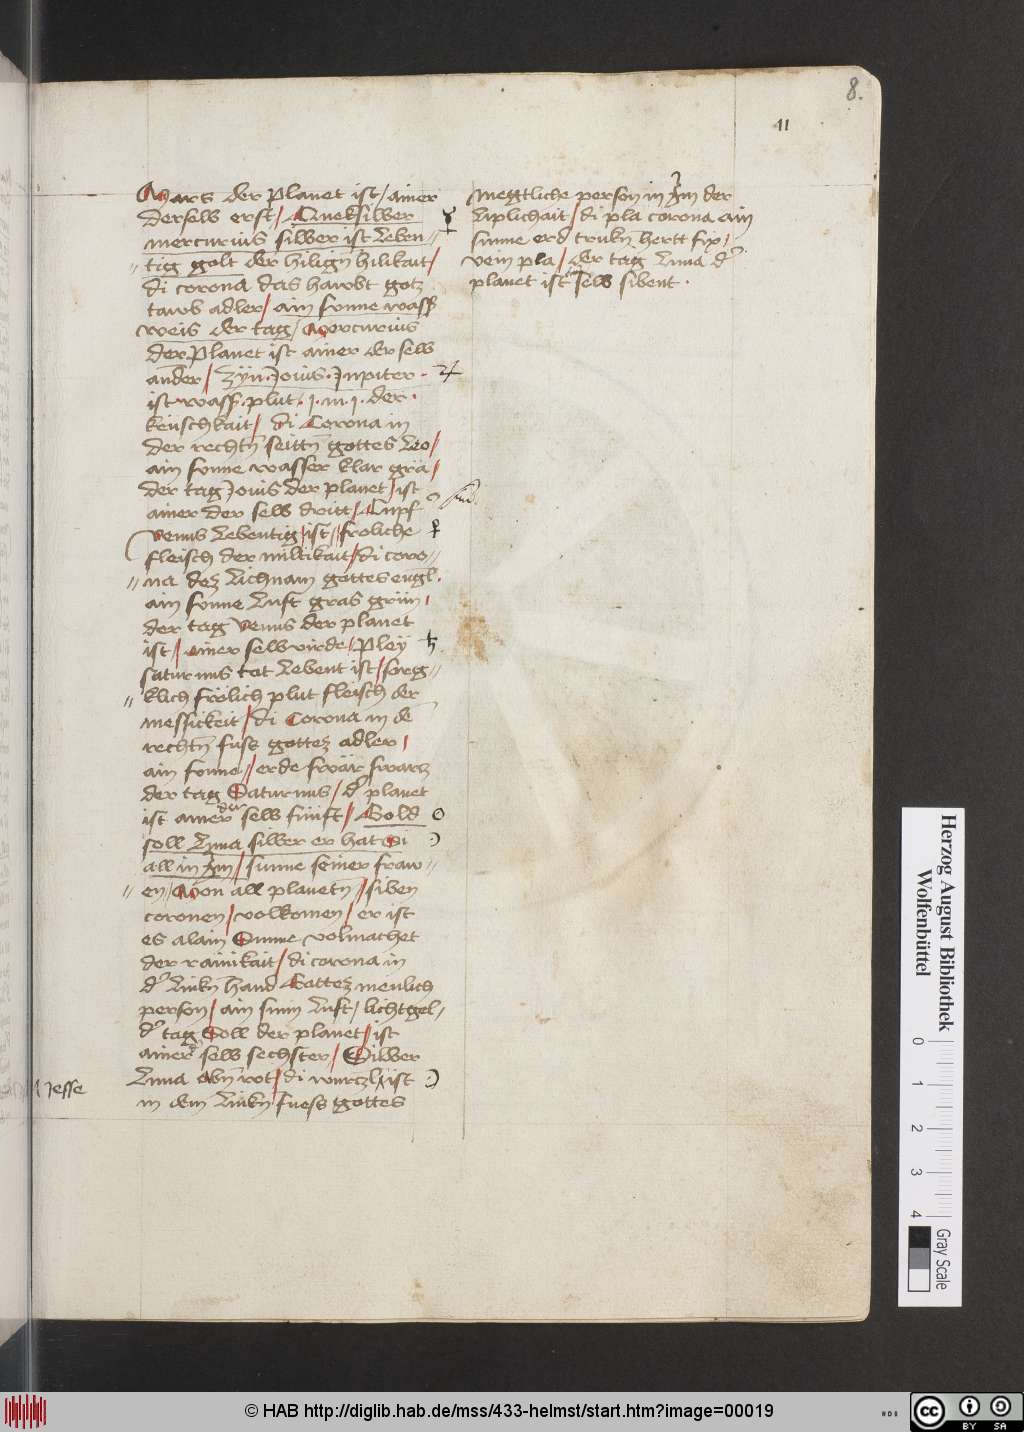 8.
11
Mars der planet ist / ainer
derselw erst / Queksilwer
mercurius silwer ist Lebn"
"tig golt der hiligñ hilikait /
di corona das hawbt gotz
tawb adler / ain sonne wass
weis der tag / Morcurius
der Planet ist ainer der selw
ander / Zÿn Jouis Jupiter ♃
ist wass plut der
keuschkait / di Corona in
der rechtñ seittñ gottes Leo /
ain sonne wasser klar gra /
der tag Jouis der planet / ist
ainer der selw dritt / Cupf
Venus Lebentig / ist / froliche ♀
fleisch der miltikait / di coro"
"na dez Lichnam gottes engl.
ain sonne Luft gras grün /
der tag Venus der planet
ist / ainer selw virde / Pleÿ ♄
saturnus tot Lebent ist / sorg"
"klich frölich plut fleisch der
messickeit / di Corona in dē
rechtñ fuss gottez adler /
ain sonne / erde swär swarz
der tag Saturnus / d' planet
ist ainer der selw fünft / Gold
soll Luna silwer er hat di
all in Im / sunne seiner fraw"
"en / Mon all planetñ / siben
coronen / volkomen / er ist
es alain Sunne volmachet
der rainikait / di corona in
d' linkñ hand Gottez menlich
person / ain sunn Luft / lichtgel /
d' tag Soll der planet / ist
ainer d' selw sechster / Silwer
Luna obñ rot / di wurczl ist ☽
in dem Linkñ fuess gottes
Jesse
megtliche person in Im der
Liplichait / di pla corona ain
sunne erd trukñ hertt fix /
vein pla / der tag Luna d'
planet ist selw sibent .
Herzog August Bibliothek
Wolfenbüttel
0 1 2 3 4
Gray Scale
© HAB http://diglib.hab.de/mss/433-helmst/start.htm?image=00019
HAB
cc BY SA